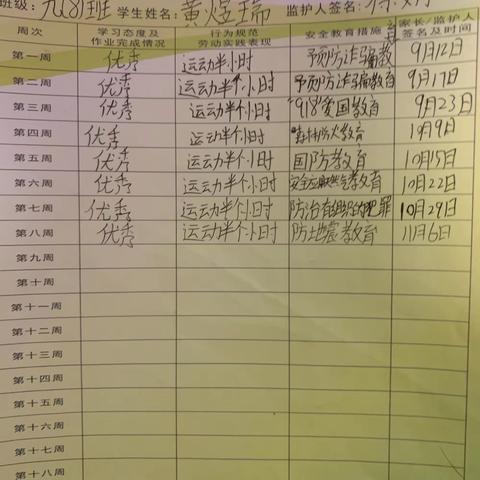 班级：九(8)班 学生姓名：黄煜瑞 监护人签名：
周次 学习态度及作业完成情况 行为规范劳动实践表现 安全教育措施 家长/监护人签名及时间
第一周 优秀 运动半小时 予预防诈骗教 9月12日
第二周 优秀 运动半个小时 予预防诈骗教育 9月17日
第三周 优秀 运动半个小时 "918"爱国教育 9月23日
第四周 优秀 运动半个小时 森林防火教育 10月9日
第五周 优秀 运动半个小时 国防教育 10月15日
第六周 优秀 运动半个小时 安全 教育 10月22日
第七周 优秀 运动半个小时 防治有组织犯罪 10月29日
第八周 优秀 运动半个小时 防地震教育 11月6日
第九周
第十周
第十一周
第十二周
第十三周
第十四周
第十五周
第十六周
第十七周
第十八周